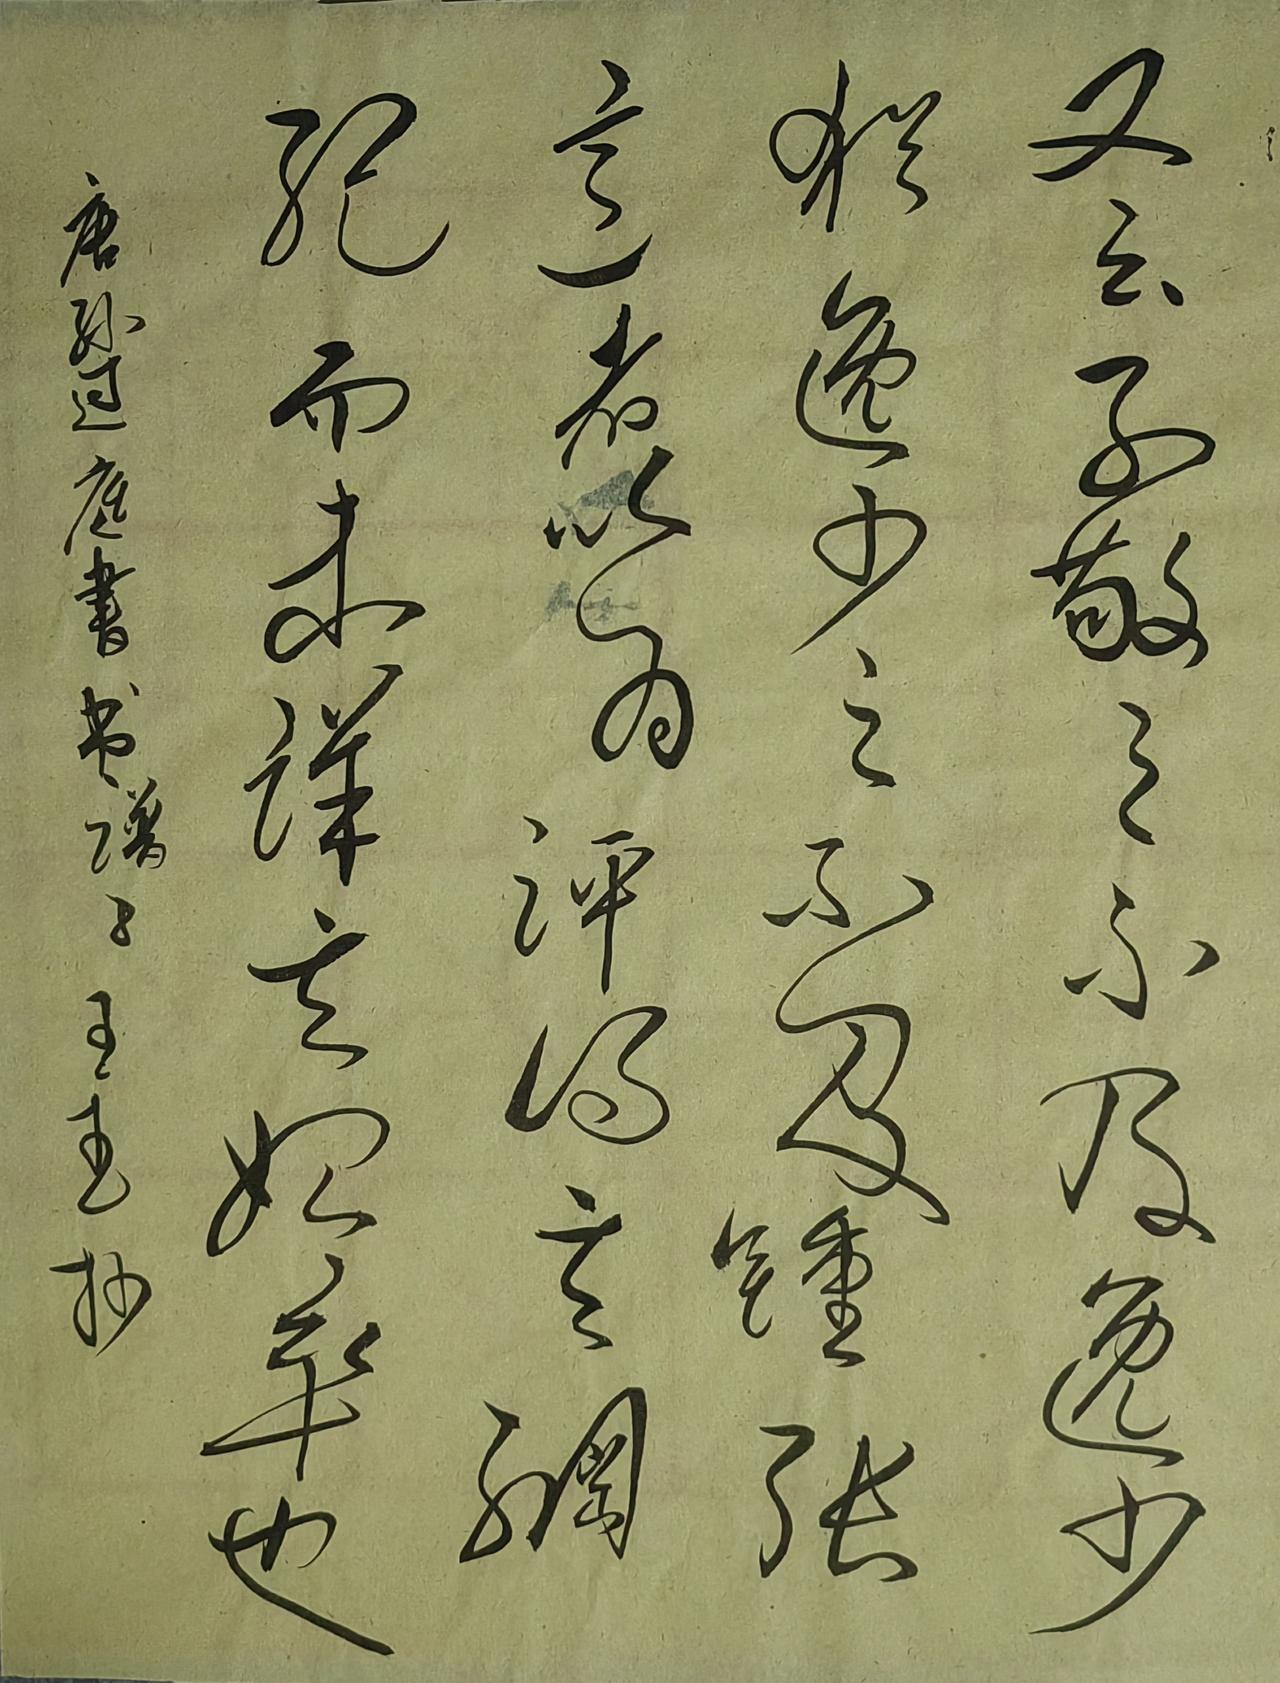 又云子敬之不及逸少
猶逸少之不及鍾張
意者以為評得其綱
紀而未詳其始卒也
唐孫过庭書书譜 王 抄